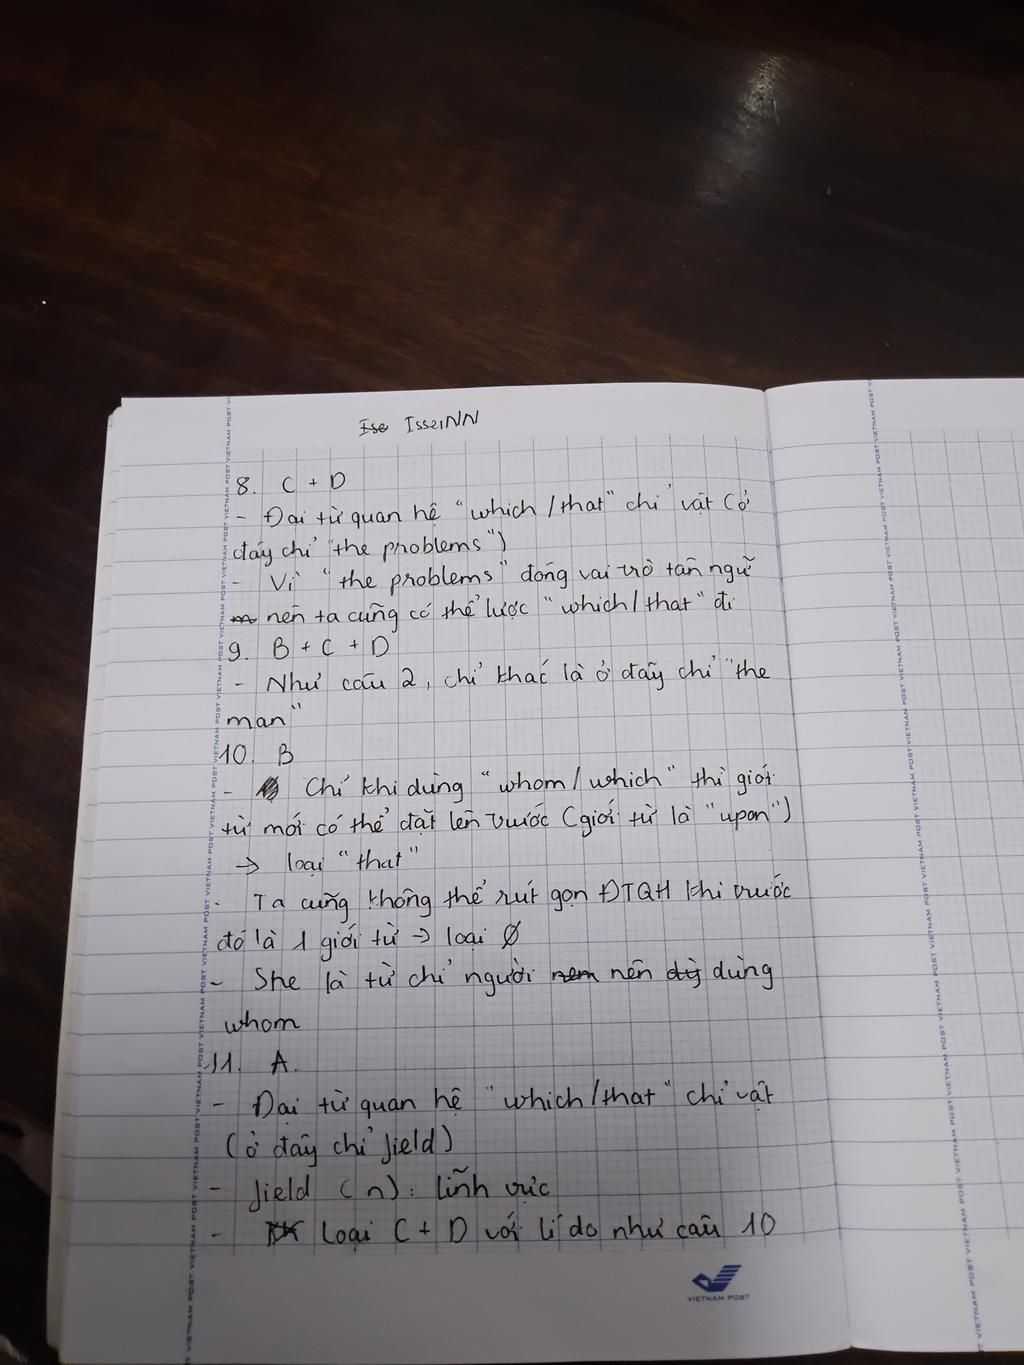 Ise IsseiNN
8. C + D
- Đại từ quan hệ "which/that" chỉ vật (ở
đây chỉ "the problems")
- Vì "the problems" đóng vai trò tân ngữ
nên ta cũng có thể lược "which/that" đi
9. B + C + D
- Như câu 2, chỉ khác là ở đây chỉ "the
man"
10. B
- Chỉ khi dùng "whom/which" thì giới
từ mới có thể đặt lên trước (giới từ là "upon")
→ loại "that"
- Ta cũng không thể rút gọn ĐTQH khi trước
đó là 1 giới từ → loại Ø
- She là từ chỉ người nên dùng
whom
11. A.
- Đại từ quan hệ "which/that" chỉ vật
(ở đây chỉ field)
- field (n): lĩnh vực
- Loại C + D với lí do như câu 10
VIETNAM POST